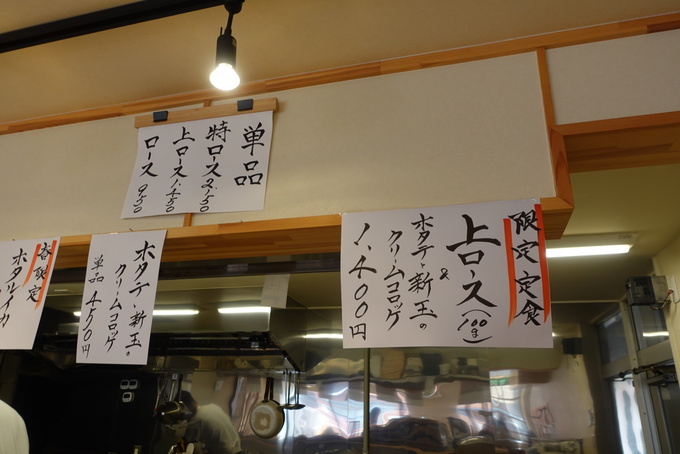 単品
特ロース 2.150
上ロース 1.450
ロース 950
限定定食
上ロース(100g)
&
ホタテと新玉の
クリームコロッケ
1.400円
ホタテと新玉の
クリームコロッケ
単品 450円
春限定
ホタルイカ